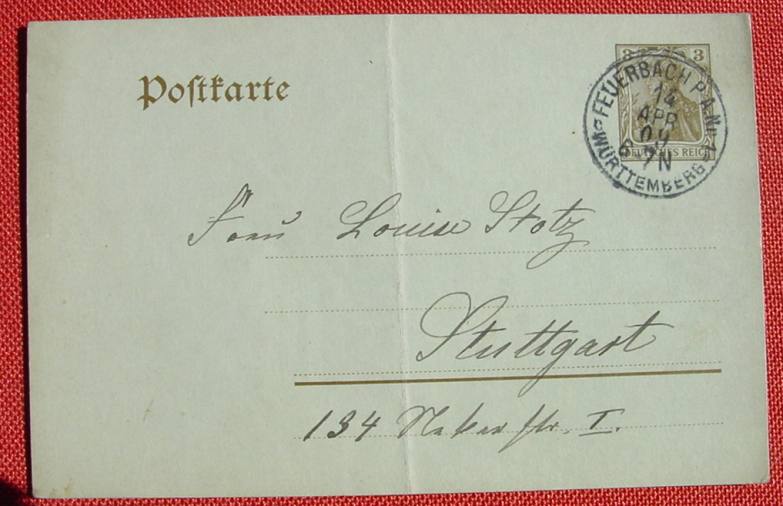 Postkarte
3 3
DEUTSCHES REICH
FEUERBACH P.A. Nr. 1
14
APR
09
6-7N
WÜRTTEMBERG
Frau Louise Stotz
Stuttgart
134 Nekar str. I.